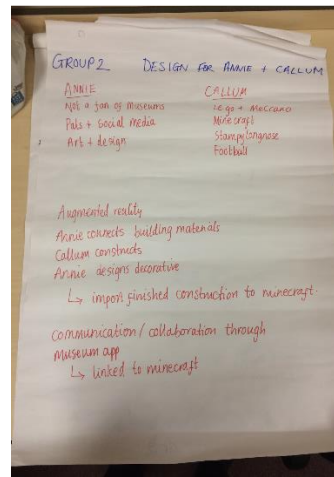 GROUP 2 DESIGN FOR ANNIE + CALLUM
ANNIE
Not a fan of museums
Pals + social media
Art + design
CALLUM
Lego + Meccano
Minecraft
Stampylongnose
Football
Augmented reality
Annie collects building materials
Callum constructs
Annie designs decorative
↳ import finished construction to minecraft.
Communication / collaboration through
museum app
↳ linked to minecraft